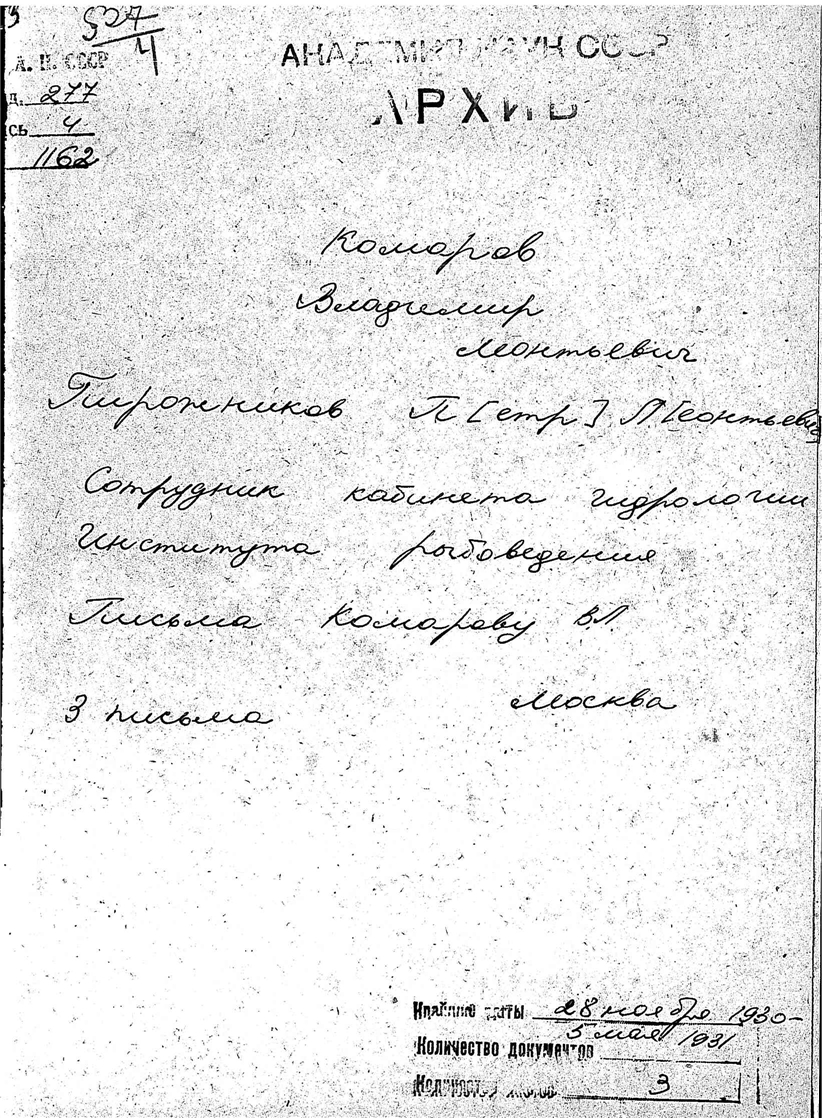 527
4
А. Н. СССР
АКАДЕМИЯ НАУК СССР
АРХИВ
д. 277
сь 4
1162
Комаров
Владимир
Леонтьевич
Пирожников П[етр] Л[еонтьевич]
Сотрудник кабинета гидрологии
Института рыбоведения
Письма Комарову ВЛ
3 письма Москва
Крайние даты 28 ноября 1930-
5 мая 1931
Количество документов
Количество листов 3